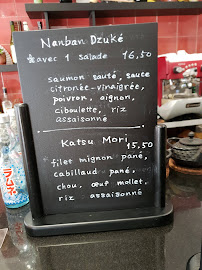 Nanban Dzuké
※avec 1 salade 16,50
saumon sauté, sauce
citronée-vinaigrée,
poivron, aignon,
ciboulette, riz
assaisonné
Katsu Mori
15,50
filet mignon pané,
cabillaud pané,
chou, œuf mollet,
riz assaisonné
ラムネ